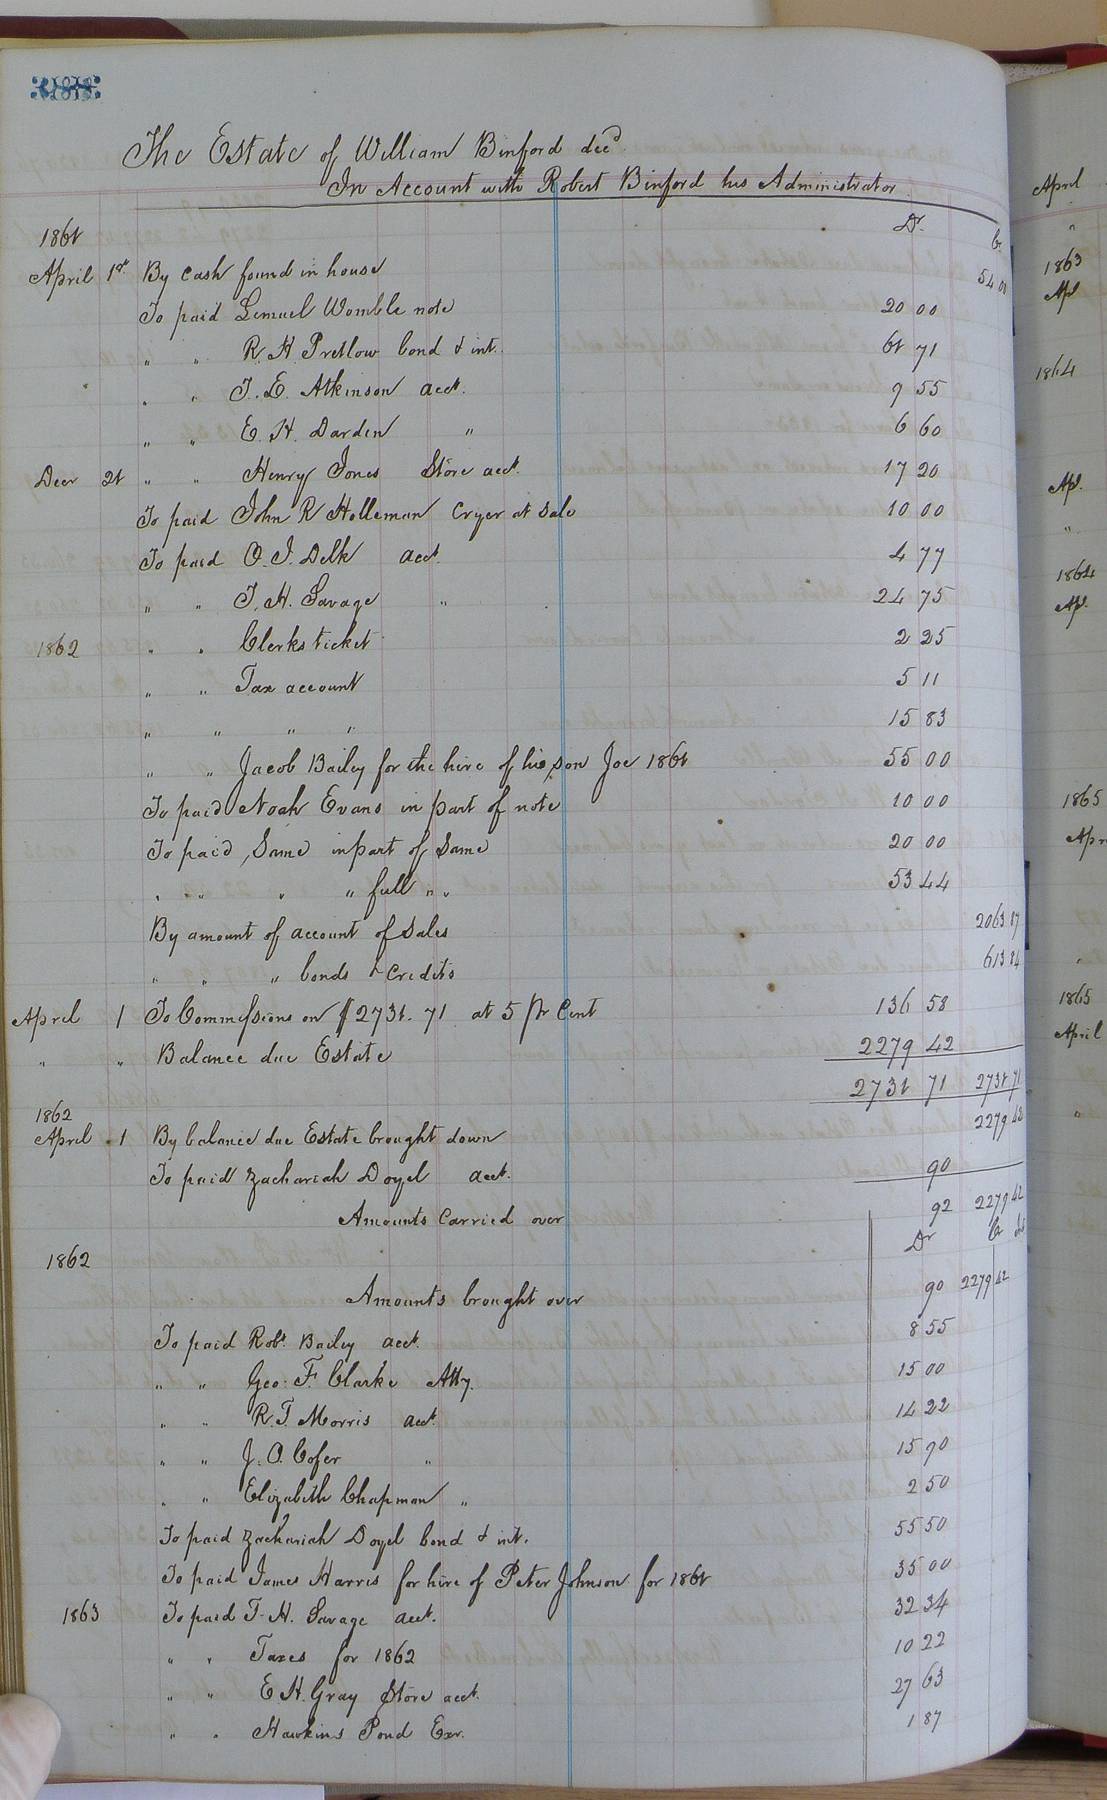 The Estate of William Binford decd
In Account with Robert Binford his Administrator
Dr. Cr
1861
April 1st By cash found in house 54 00
To paid Lemuel Womble note 20 00
" " R. H. Pretlow bond & int. 61 71
" " T. E. Atkinson acct. 9 55
" " E. H. Darden " 6 60
Decr 21 " " Henry Jones Store acct. 17 20
To paid John R Holleman Cryer at Sale 10 00
To paid O. J. Delk acct. 4 77
" " T. H. Savage " 24 75
1862 " " Clerks ticket 2 25
" " Tax account 5 11
" " " " 15 83
" " Jacob Bailey for the hire of his son Joe 1861 55 00
To paid Noah Evans in part of note 10 00
To paid Same in part of Same 20 00
" " " " full " " 53 44
By amount of account of Sales 2063 87
" " " bonds & Credits 613 84
April 1 To Commissions on $2731. 71 at 5 Pr Cent 136 58
" " Balance due Estate 2279 42
2731 71 2731 71
1862
April 1 By balance due Estate brought down 2279 42
To paid Zachariah Doyel acct. 90
Amounts Carried over 92 2279 42
Dr Cr
1862
Amounts brought over 90 2279 42
To paid Robt Bailey acct. 8 55
" " Geo: F. Clarke Atty. 15 00
" " R. T. Morris acct. 14 22
" " J. O. Cofer " 15 90
" " Elizabeth Chapman " 2 50
To paid Zachariah Doyel bond & int. 55 50
To paid James Harris for hire of Peter Johnson for 1861 35 00
1863 To paid T. H. Savage acct. 32 34
" " Taxes for 1862 10 22
" " E. H. Gray Store acct. 27 63
" " Hawkins Pond Exr. 1 87
April
"
1863
Apl
1864
Apl.
"
1864
Apl.
1865
Apr
1865
April